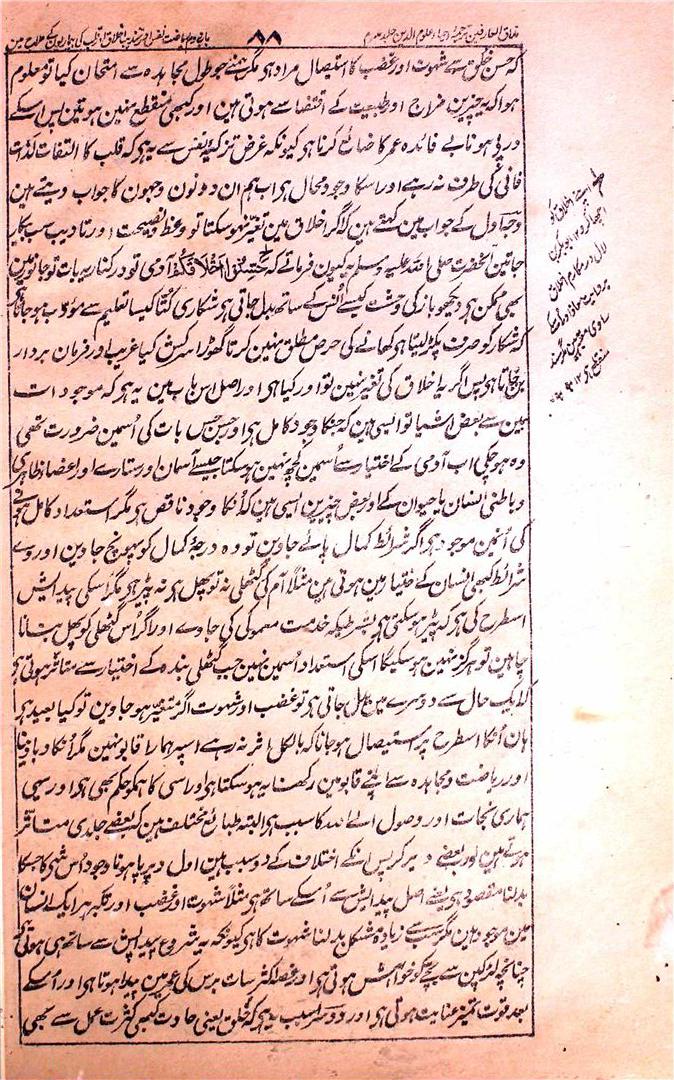 مذاق العارفین ترجمہ احیاء علوم الدین جلد سوم
۸۸
باب دوم ریاضت نفس اور تہذیب اخلاق اور قلب کی بیماریوں کے علاج مین
کہ حسن خلق سے شہوت اور غضب کا استیصال مراد ہی مگر ہمنے جو طول مجاہدہ سے امتحان کیا تو معلوم
ہوا کہ یہ چیزین مزاج اور طبیعت کے اقتضا سے ہوتی ہین اور کبھی منقطع نہین ہوتین پس اسکے
درپی ہونا بے فائدہ عمر کا ضائع کرنا ہی کیونکہ غرض تزکیہ نفس سے یہ ہی کہ قلب کا التفات لذات
فانی کی طرف نہ رہے اور اسکا وجود محال ہی اب ہم ان دونون وجہون کا جواب دیتے ہین
وجہ اول کے جواب مین کہتے ہین کہ اگر اخلاق مین تغیر نہو سکتا تو وعظ و نصیحت اور تادیب سب بیکار
جاتین آنحضرت صلی اللہ علیہ وسلم یہ کیون فرماتے کہ حَسِّنُوا اَخْلَاقَکُمْ آدمی تو درکنار یہ بات تو جانورمین
بھی ممکن ہی دیکھو باز کی وحشت کیسے اُنس کے ساتھ بدل جاتی ہی شکاری کتا کیسا تعلیم سے مودّب ہو جاتا ہی
کہ شکار کو صرف پکڑ لیتا ہی کھانے کی حرص مطلق نہین کرتا گھوڑا سرکش کیا غریب اور فرمان بردار
بن جاتا ہی پس اگر یہ اخلاق کی تغیر نہین تو اور کیا ہی اور اصل اس باب مین یہ ہی کہ موجودات
مین سے بعض اشیا تو ایسی ہین کہ جنکا وجود کامل ہی اور جس جس بات کی اُسمین ضرورت تھی
وہ ہو چکی اب آدمی کے اختیار سے اُسمین کچھ نہین ہو سکتا جیسے آسمان اور ستارے اور اعضا ظاہری
و باطنی انسان یا حیوان کے اور بعض چیزین ایسی ہین کہ اُنکا وجود ناقص ہی مگر استعداد کامل ہونے
کی اُنمین موجود ہی اگر شرائط کمال پائے جاوین تو وہ درجۂ کمال کو پہونچ جاوین اور وے
شرائط کبھی انسان کے اختیار مین ہوتی ہین مثلاً آم کی گٹھلی نہ تو پھل ہی نہ پیڑ ہی مگر اُسکی پیدایش
اسطرح کی ہی کہ پیڑ ہو سکتی ہی بشرطیکہ خدمت معمولی کی جاوے اور اگر اُس گٹھلی کو پھل بنانا
چاہین تو ہرگز نہین ہو سکیگا اسکی استعداد اُسمین نہین جب گٹھلی بندہ کے اختیار سے متاثر ہوتی ہی
کہ ایک حال سے دوسرے مین بدل جاتی ہی تو غضب اور شہوت اگر متغیر ہو جاوین تو کیا بعید ہی
ہان اُنکا اسطرح پر استیصال ہو جانا کہ بالکل اثر نہ رہے اسپر ہمارا قابو نہین مگر اُنکا دبا دینا
اور ریاضت و مجاہدہ سے اپنے قابو مین رکھنا یہ ہو سکتا ہی اور اسی کا ہمکو حکم بھی ہی اور یہی
ہماری نجات اور وصول الے اللہ کا سبب ہی البتہ طبائع مختلف ہین کہ بعضے جلدی متاثر
ہوتے ہین اور بعضے دیر کر پس انکے اختلاف کے دو سبب ہین اول دیرپا ہونا وجود اُس شی کا جسکا
بدلنا مقصود ہی یعنے اصل پیدایش سے اُسکے ساتھ ہی مثلاً شہوت اور غضب اور تکبر ہر ایک انسان
مین موجود ہین مگر سب سے زیادہ مشکل بدلنا شہوت کا ہی کیونکہ یہ شروع پیدایش سے ساتھ ہی ہوتی ہی
چنانچہ لڑکپن سے بچے کو خواہش ہوتی ہی اور غصہ اکثر سات برس کی عمر مین پیدا ہوتا ہی اور اُسکے
بعد قوت تمیز عنایت ہوتی ہی اور دوسرا سبب یہ ہی کہ خلق یعنی عادت کبھی کثرت عمل سے بھی
اخلاق کو
اچھا کرو ۱۲ ابو بکر بن
لال در مکارم اخلاق